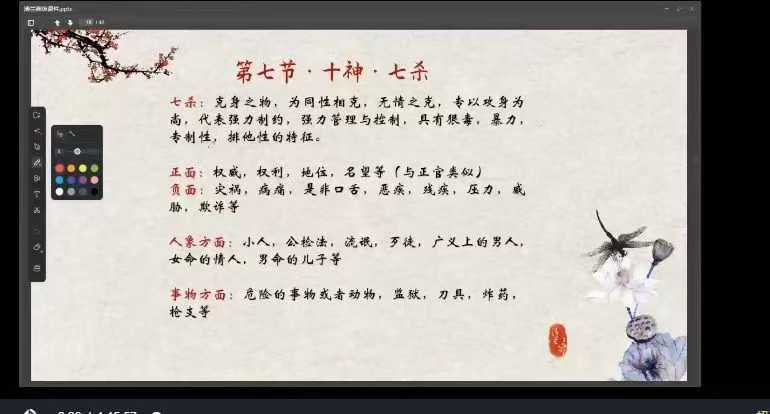 第七节·十神·七杀
七杀：克身之物，为同性相克，无情之克，专以攻身为
尚，代表强力制约，强力管理与控制，具有狠毒，暴力，
专制性，排他性的特征。
正面：权威，权利，地位，名望等（与正官类似）
负面：灾祸，病痛，是非口舌，恶疾，残疾，压力，威
胁，欺诈等
人象方面：小人，公检法，流氓，歹徒，广义上的男人，
女命的情人，男命的儿子等
事物方面：危险的事物或者动物，监狱，刀具，炸药，
枪支等